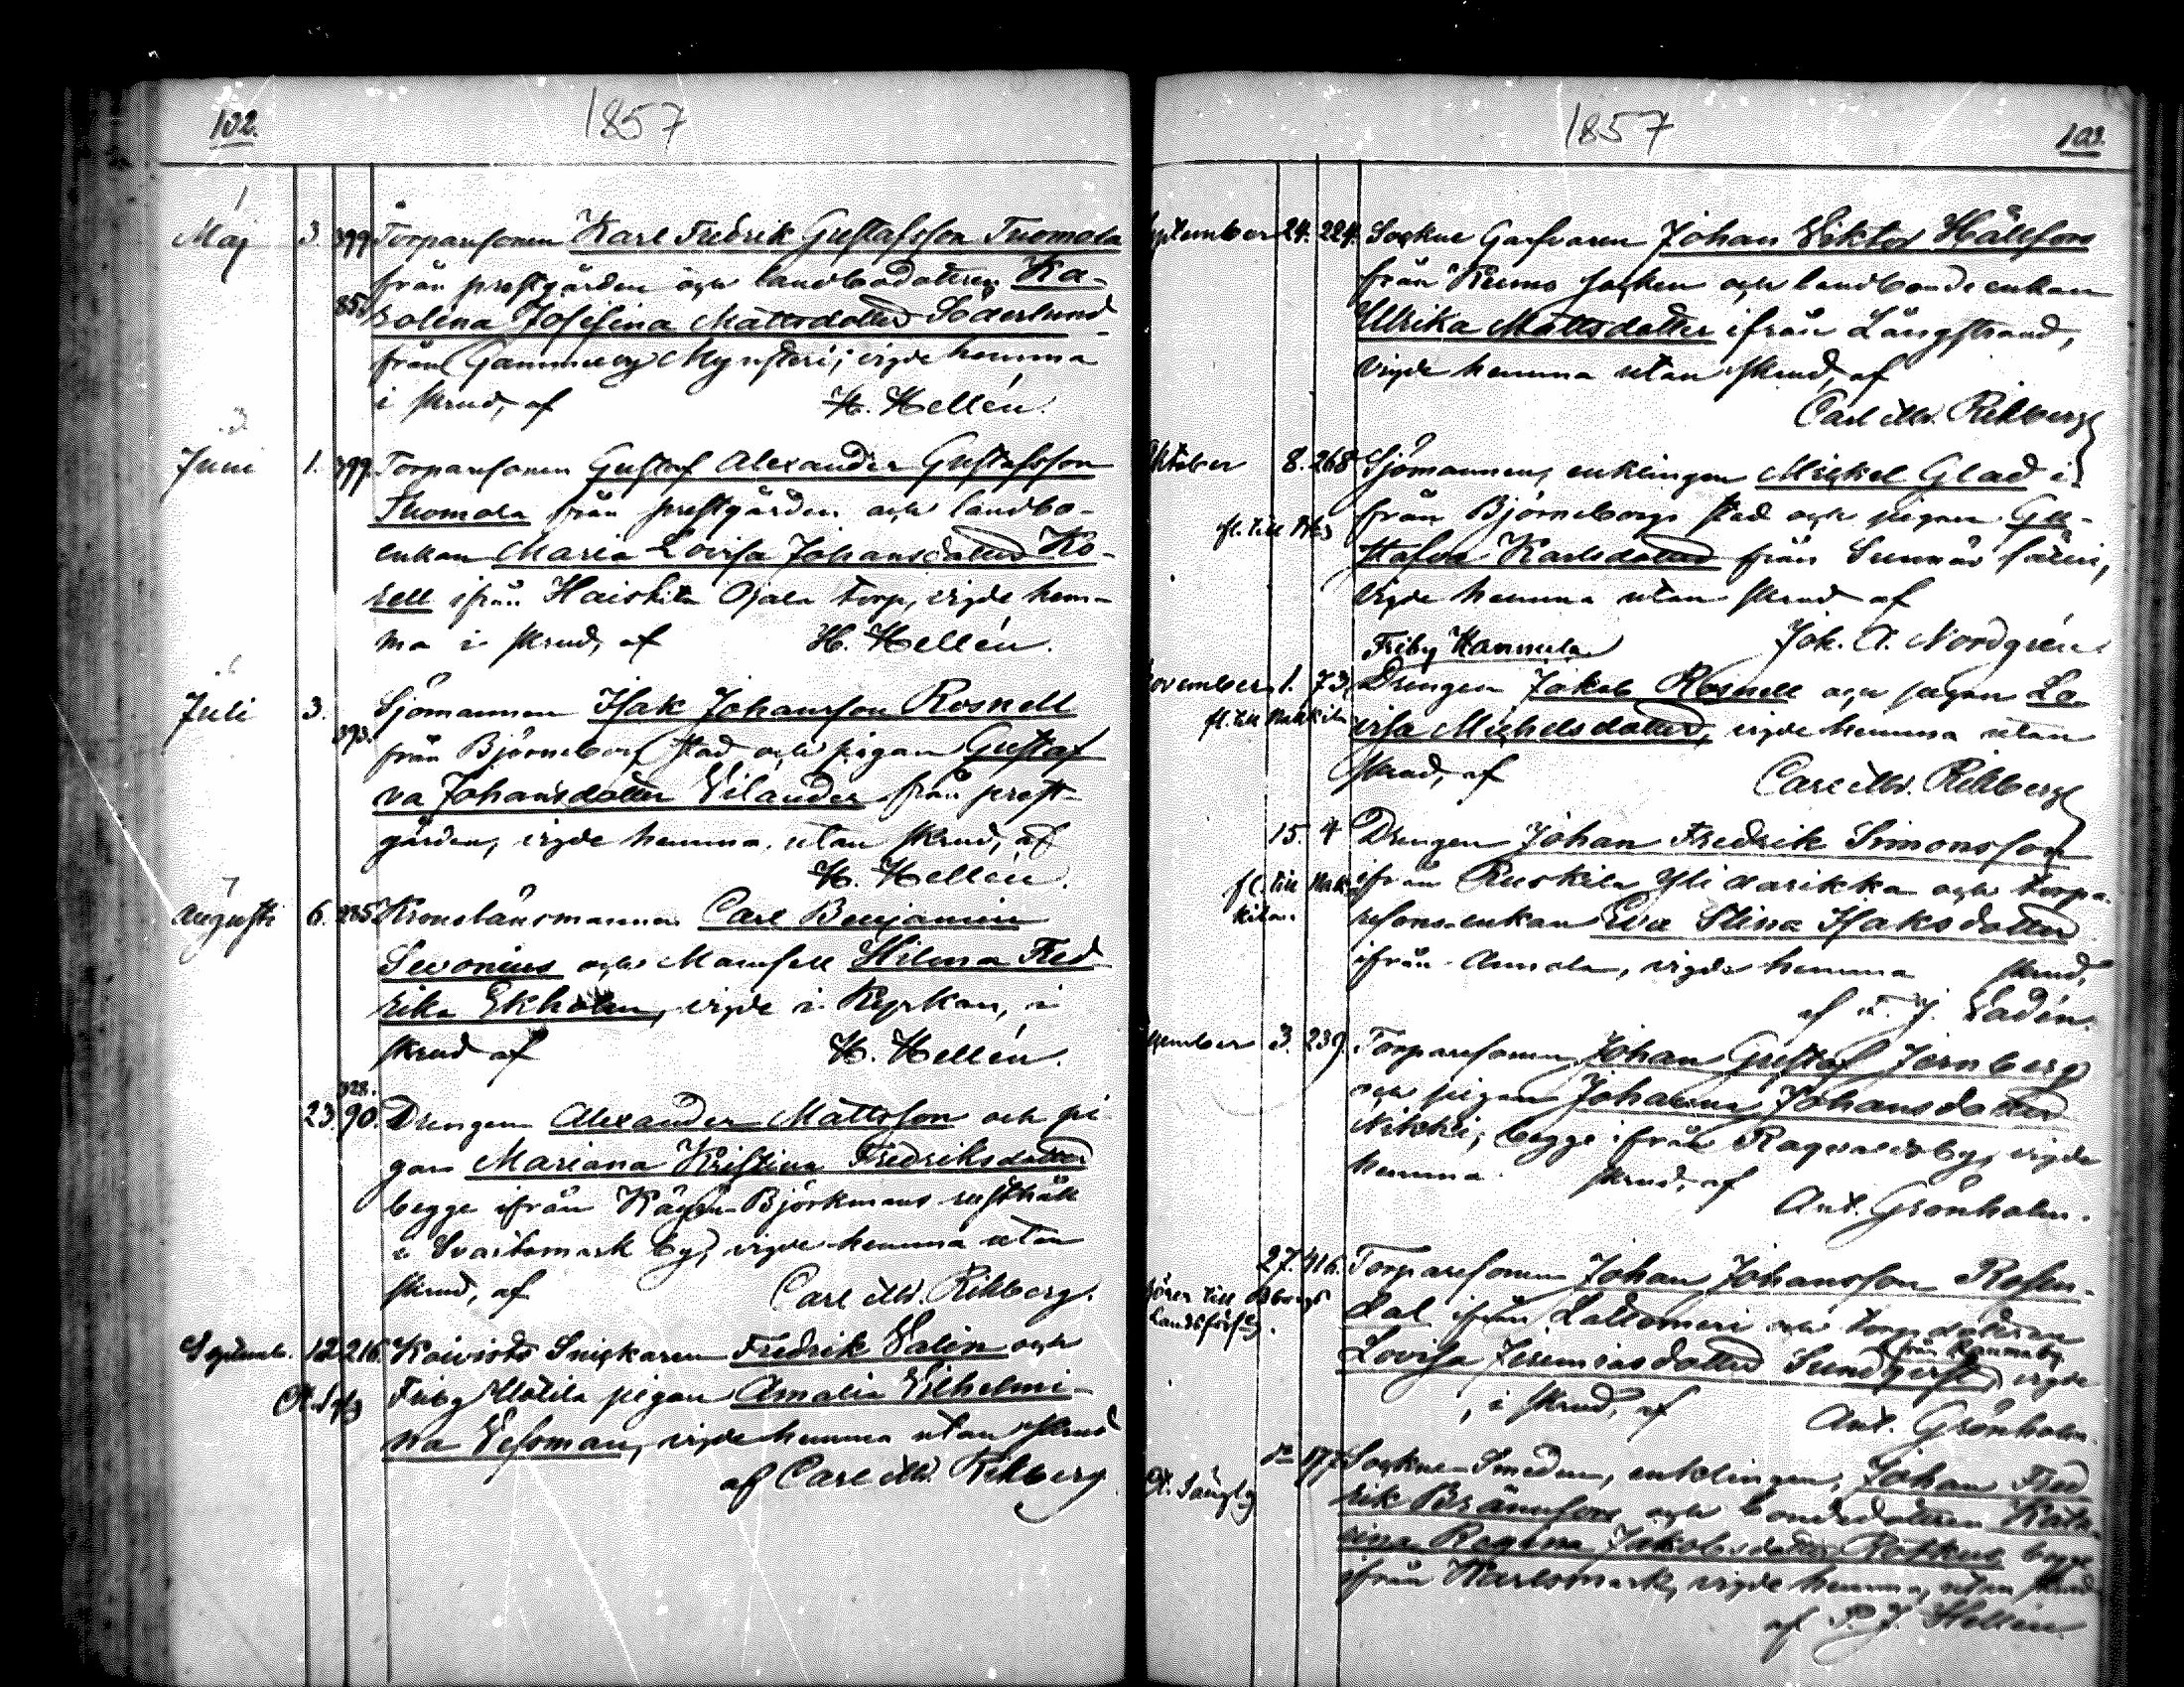 102.
1857
Maj 3. 399. Torparesonen Karl Fredrik Gustafsson Tuomola
från prestgården och landbodottren Ka-
85. rolina Josefina Mattsdotter Söderlund
från Gammelby Mynsteri; vigde hemma
i skrud, af H. Hellén.
Juni 1. 399. Torparesonen Gustaf Alexander Gustafsson
Tuomola från prestgården och landbo-
enkan Maria Lovisa Johansdotter Ko-
rell ifrån Haistila Ojala torp, vigde hem-
ma i skrud, af H. Hellén.
Juli 3. Sjömannen Isak Johansson Rosnell
393. från Björneborg stad och pigan Gustaf
va Johansdotter Vilander från prest-
gården, vigde hemma, utan skrud, af
H. Hellén.
Augusti 6. 285. Kronolänsmannen Carl Benjamin
Sevonius och Mamsell Hilma Fred
rika Ekholm, vigde i Kyrkan, i
skrud af H. Hellén.
328.
23. 90. Drengen Alexander Mattsson och pi
gan Mariana Kristina Fredriksdotter
begge ifrån Björkmans rusthåll
i Svartsmark by, vigde hemma utan
skrud, af Carl Mr. Rihlberg.
Septemb. 12 216. Koivisto Snickaren Fredrik Valin och
Friby Mötila pigan Amalia Vilhelmi-
na Vesoman, vigde hemma utan skrud
af Carl Mr. Rihlberg.
1857
103.
September 24. 224. Sockne Garfvaren Johan Viktor Hällfors
från Kumo socken och landbonde enkan
Ullrika Mattsdotter ifrån Långstrand,
vigde hemma utan skrud, af
Carl Mr. Rihlberg
Oktober 8. 268 Sjömannen, enklingen Mickel Glad i-
från Björneborgs stad och pigan Gu-
stafva Karlsdotter från Sunnäs säteri,
vigde hemma utan skrud af
Friby Hannula Joh. A. Nordgrén
November 1. 73. Drengen Jakob Rosnell och pigan Lo
fl. till Nakkila visa Michelsdotter, vigde hemma utan
skrud, af Carl Mr. Rihlberg
15. 4 Drengen Johan Fredrik Simonsson
fl. till Nak- ifrån Ruskila Yli och torpa-
kila. resons-enkan Eva Stina Isaksdotter
ifrån Annola, vigde hemma skrud,
af F. J. Ladén.
December 3. 239. Torparesonen Johan Gustaf Jernberg
och pigan Johanna Johansdotter
begge ifrån Ragvaldsby, vigde
hemma skrud, af
Ant. Grönholm.
27. 416. Torparesonen Johan Johansson Rosen-
hörer till Bborgs dal ifrån Lattomeri och torpdottren
Landsförs:g. från Kannaby
Lovisa Jeremiasdotter Sundqvist, vigde
, i skrud, af Ant. Grönholm.
177 Sockne Smeden, enklingen, Johan Fred
rik Brännfors och bondedottren Kata-
rina Regina Jakobsdotter begge
ifrån Karlsmark, vigde hemma, utan skrud
af P. J. Hellén.